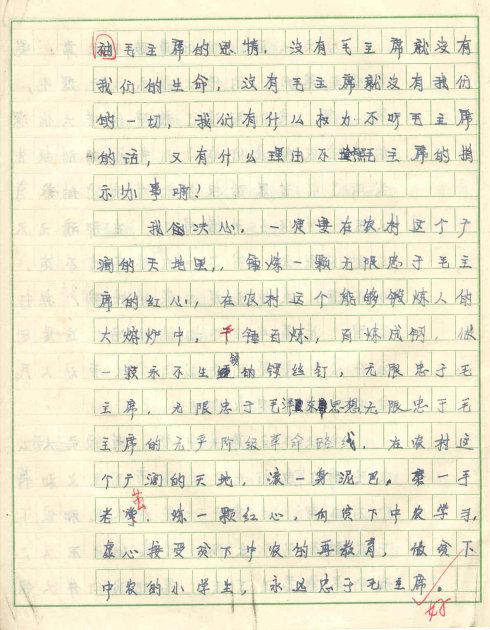 袖毛主席的恩情，没有毛主席就没有
我们的生命，没有毛主席就没有我们
的一切，我们有什么权力不听毛主席
的话，又有什么理由不按照毛主席的指
示办事呀！
我们决心，一定要在农村这个广
阔的天地里，锤炼一颗无限忠于毛主
席的红心，在农村这个能够锻炼人的
大熔炉中，千锤百炼，百炼成钢，做
一颗永不生锈的锣丝钉，无限忠于毛
主席，无限忠于毛泽东思想无限忠于毛
主席的无产阶级革命路线，在农村这
个广阔的天地，滚一身泥巴。磨一手
老茧，炼一颗红心，向贫下中农学习，
虚心接受贫下中农的再教育，做贫下
中农的小学生，永远忠于毛主席。
好